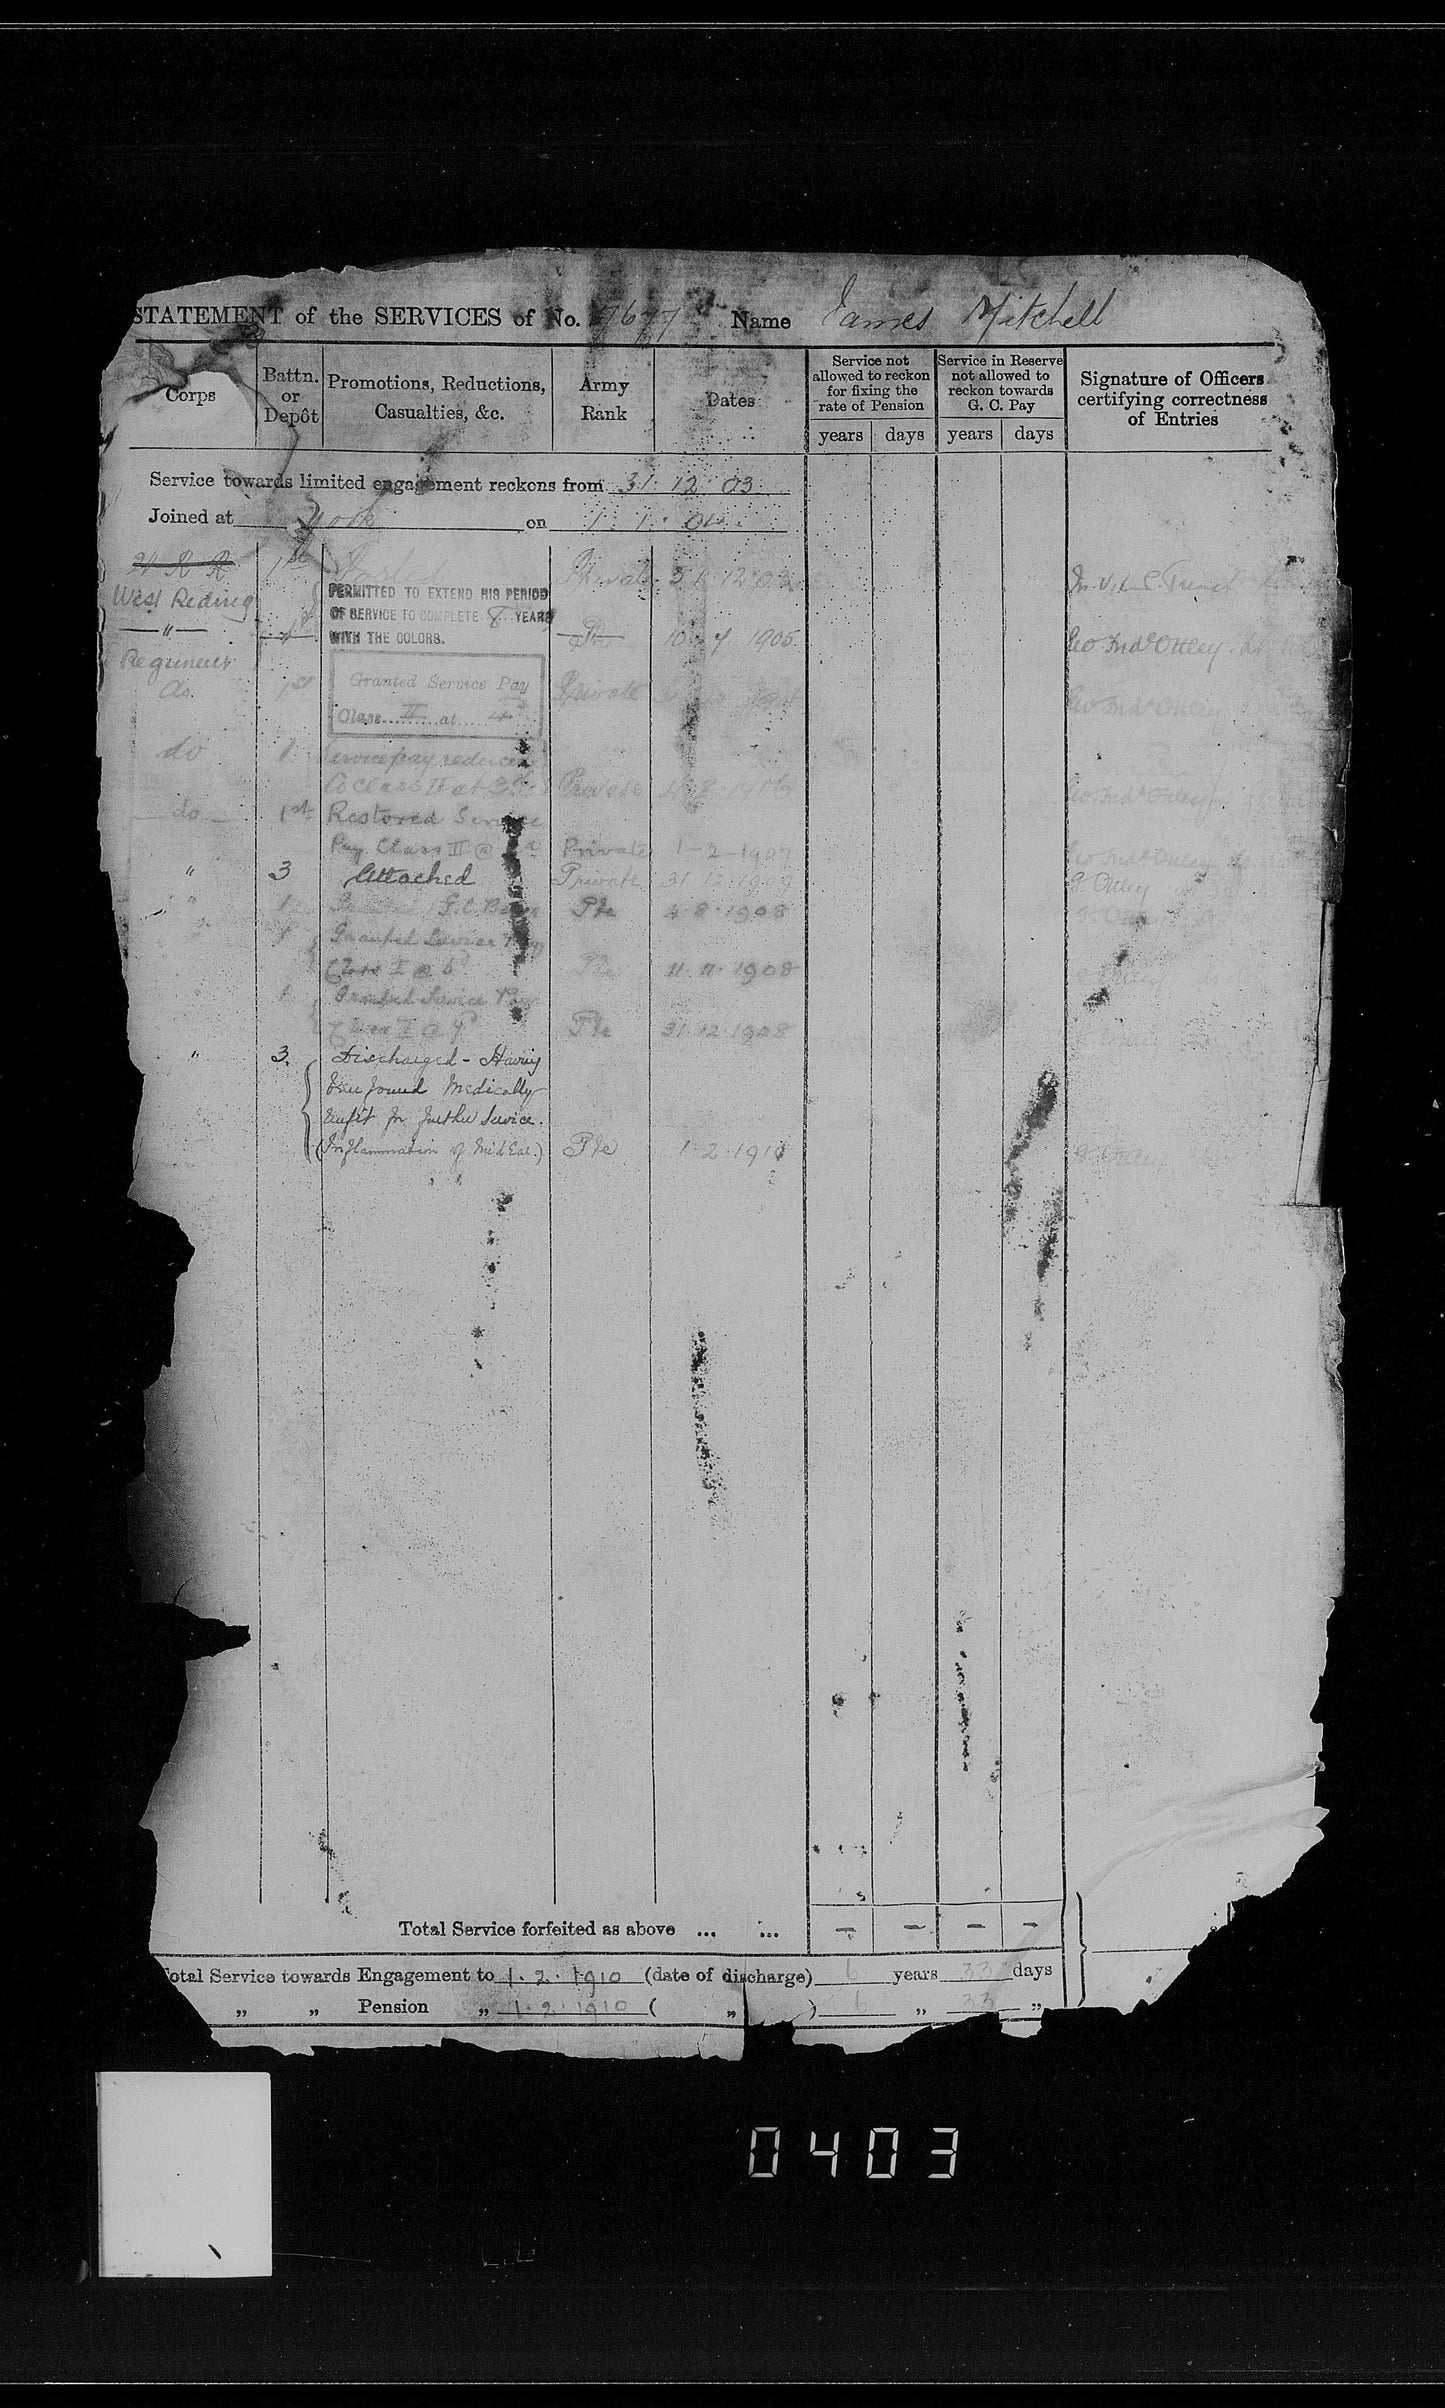 STATEMENT of the SERVICES of No. 7677 Name James Mitchell
Corps
Battn. or Depôt
Promotions, Reductions, Casualties, &c.
Army Rank
Dates
Service not allowed to reckon for fixing the rate of Pension
years days
Service in Reserve not allowed to reckon towards G. C. Pay
years days
Signature of Officers certifying correctness of Entries
Service towards limited engagement reckons from 31.12.03
Joined at York on 1.1.04
1st Private 31.12.03
West Riding
PERMITTED TO EXTEND HIS PERIOD
OF SERVICE TO COMPLETE 8 YEARS
WITH THE COLORS.
—"— 10 4 1906 Geo Fredk Ottley
Regiment
Granted Service Pay
do 1st Private Geo Fredk Ottley
Class II at 4d
do 1 Service pay reduced
to Class II at 3d Private 4.8.1906 Geo Fredk Ottley
do 1st Restored Service
Pay Class II @ Private 1-2-1907 Geo Fredk Ottley
" 3 Attached Private 31 12 1907 G. Ottley
" 1 G.C. Badge Pte 4.8.1908
1 Granted Service Pay
Class I @ 6d Pte 11.11.1908
1 Granted Service Pay
Class I @ Pte 31.12.1908
" 3. Discharged - Having
been found Medically
Unfit for further Service.
(Inflammation of Mid Ear.) Pte 1.2.1910 G. Ottley
Total Service forfeited as above ... ... — — — —
Total Service towards Engagement to 1.2.1910 (date of discharge) 6 years 33 days
„ „ Pension „ 1.2.1910 ( „ ) 6 „ 33 „
0403